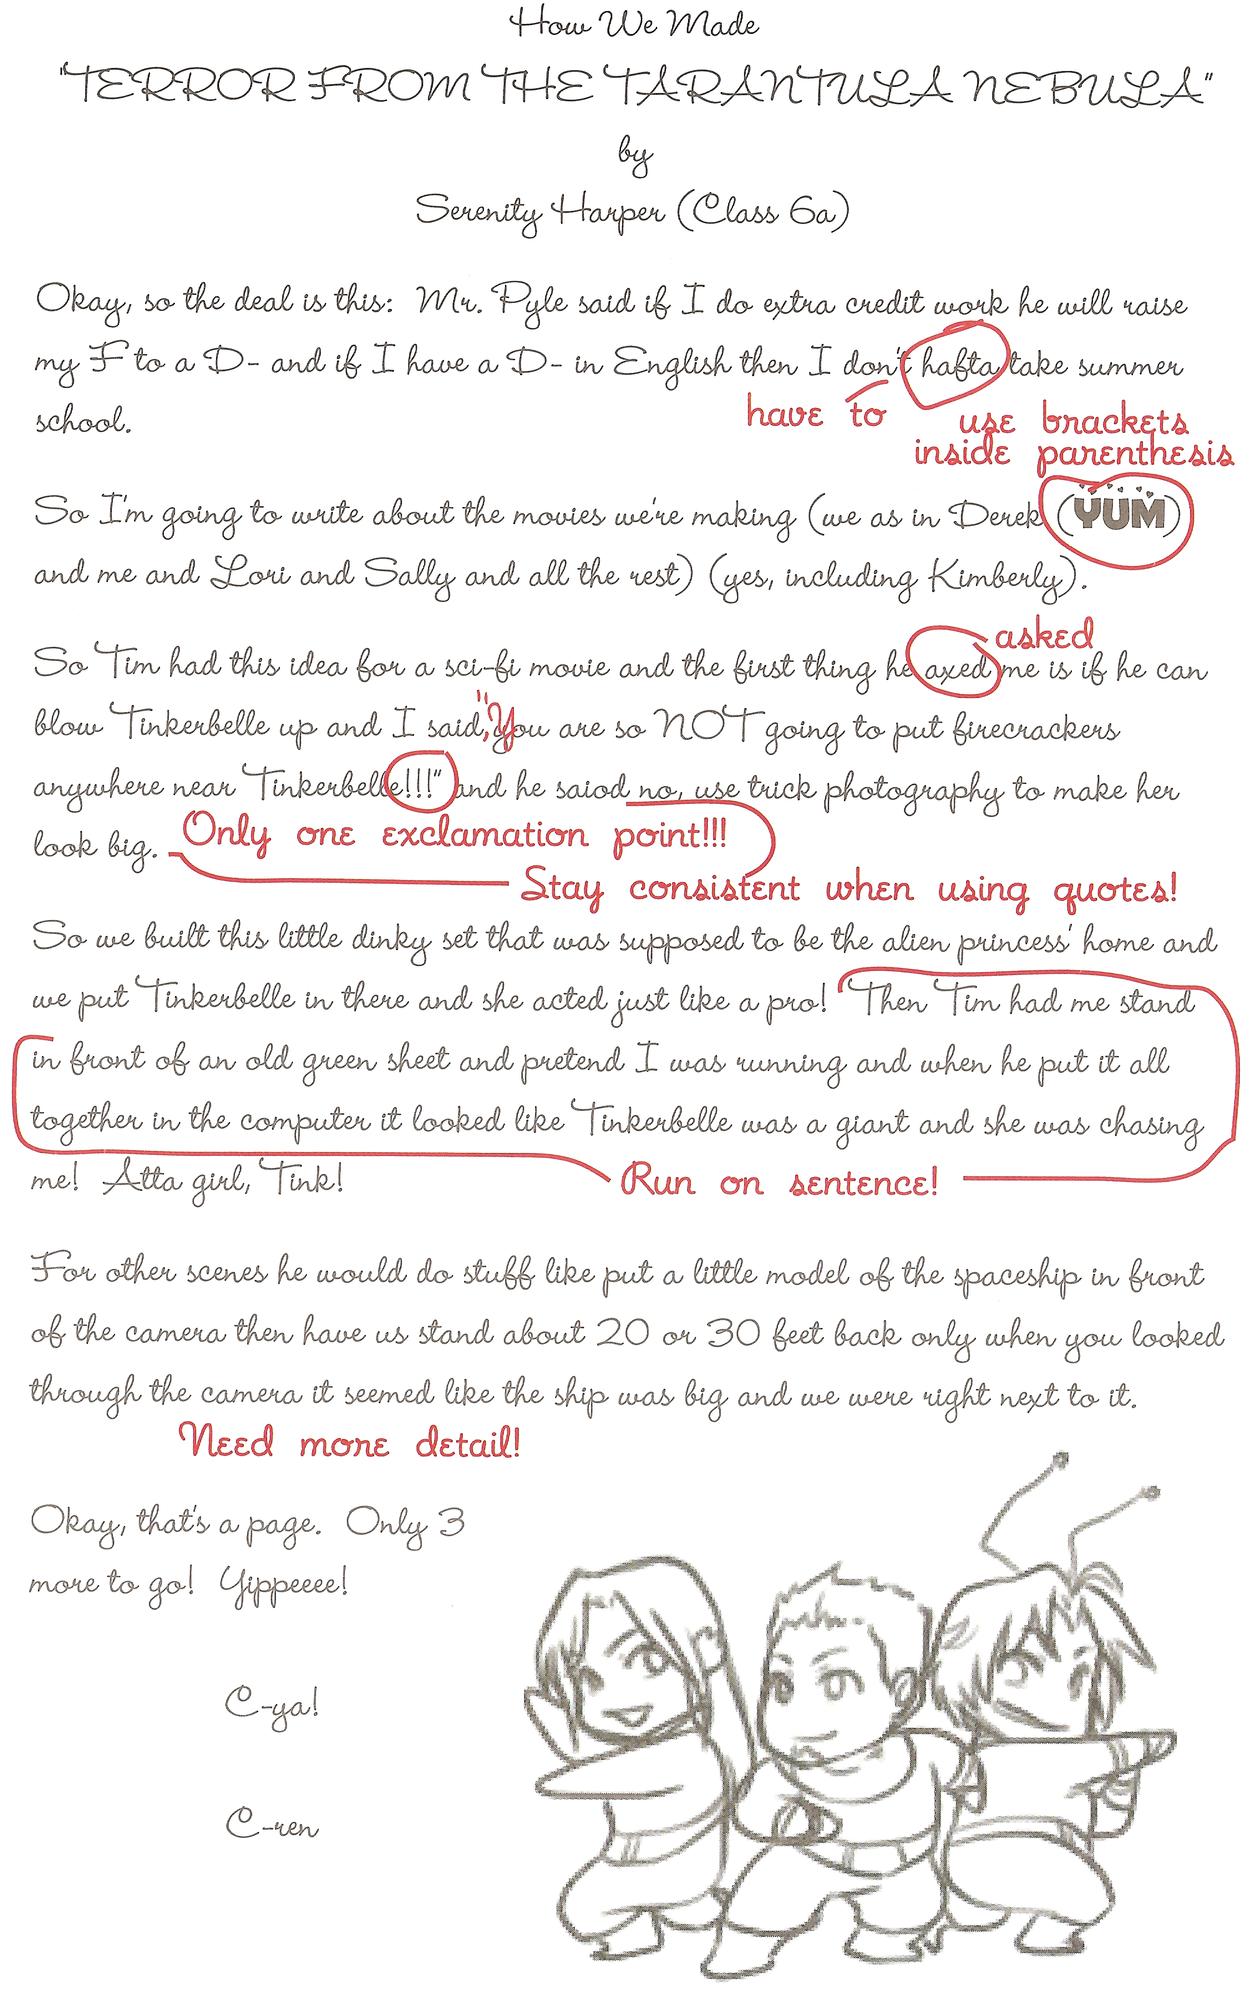 How We Made
"TERROR FROM THE TARANTULA NEBULA"
by
Serenity Harper (Class 6a)
Okay, so the deal is this: Mr. Pyle said if I do extra credit work he will raise
my F to a D- and if I have a D- in English then I don't hafta take summer
have to
school.
use brackets
inside parenthesis
So I'm going to write about the movies we're making (we as in Derek (YUM)
and me and Lori and Sally and all the rest) (yes, including Kimberly).
asked
So Tim had this idea for a sci-fi movie and the first thing he axed me is if he can
blow Tinkerbelle up and I said, "You are so NOT going to put firecrackers
anywhere near Tinkerbelle!!!" and he saiod no, use trick photography to make her
look big.
Only one exclamation point!!!
Stay consistent when using quotes!
So we built this little dinky set that was supposed to be the alien princess' home and
we put Tinkerbelle in there and she acted just like a pro! Then Tim had me stand
in front of an old green sheet and pretend I was running and when he put it all
together in the computer it looked like Tinkerbelle was a giant and she was chasing
me! Atta girl, Tink!
Run on sentence!
For other scenes he would do stuff like put a little model of the spaceship in front
of the camera then have us stand about 20 or 30 feet back only when you looked
through the camera it seemed like the ship was big and we were right next to it.
Need more detail!
Okay, that's a page. Only 3
more to go! Yippeeee!
C-ya!
C-ren